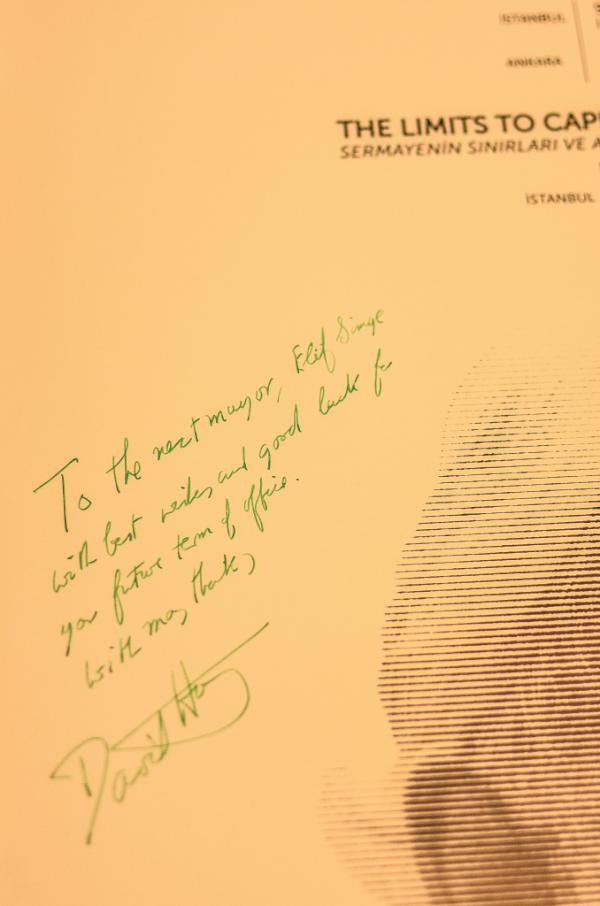 İSTANBUL
ANKARA
THE LIMITS TO CAP
SERMAYENİN SINIRLARI VE A
İSTANBUL
To the next mayor, Elif Simge
with best wishes and good luck for
your future term of office.
with many thanks,
David